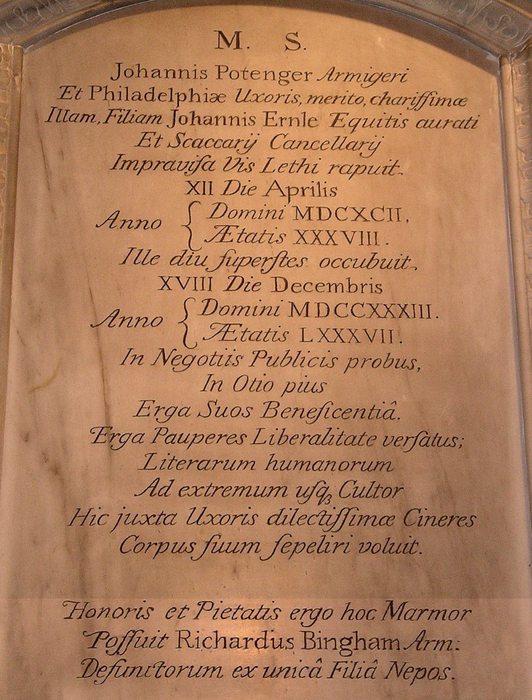 M. S.
Johannis Potenger Armigeri
Et Philadelphiæ Uxoris, merito, chariſſimæ
Illam, Filiam Johannis Ernle Equitis aurati
Et Scaccarij Cancellarij
Improviſa Vis Lethi rapuit.
XII Die Aprilis
Anno { Domini MDCXCII,
Ætatis XXXVIII.
Ille diu ſuperſtes occubuit,
XVIII Die Decembris
Anno { Domini MDCCXXXIII.
Ætatis LXXXVII.
In Negotiis Publicis probus,
In Otio pius
Erga Suos Beneficentiâ.
Erga Pauperes Liberalitate verſatus;
Literarum humanorum
Ad extremum uſqꝫ Cultor
Hic juxta Uxoris dilectiſſimæ Cineres
Corpus ſuum ſepeliri voluit.
Honoris et Pietatis ergo hoc Marmor
Poſſuit Richardus Bingham Arm:
Defunctorum ex unicâ Filiâ Nepos.